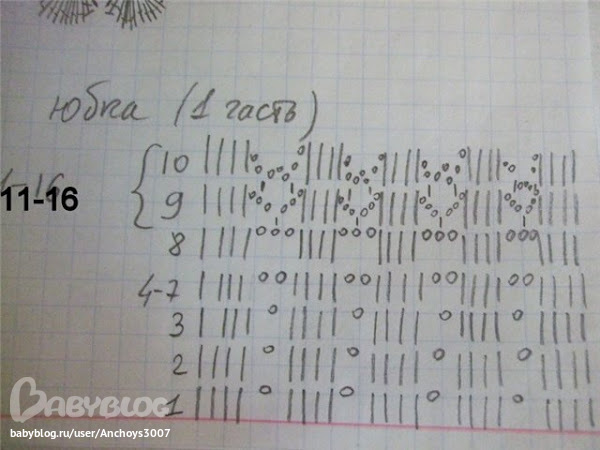 юбка (1 часть)
10
11-16
9
8
4-7
3
2
1
BABYBLOG
babyblog.ru/user/Anchoys3007